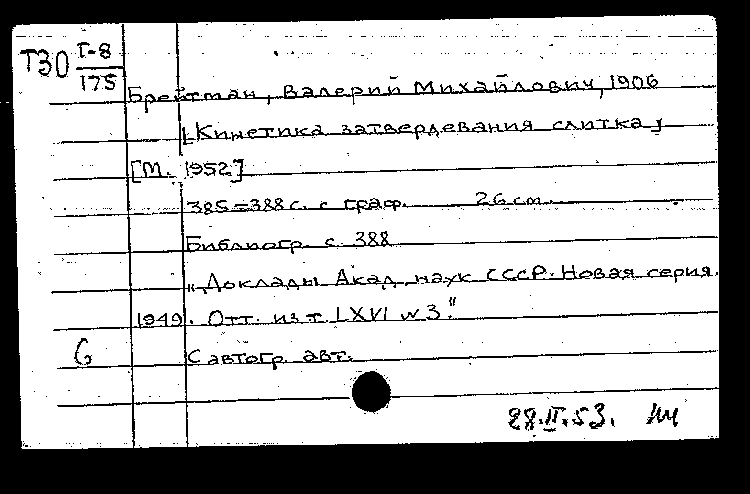 Т30 I-8
175
Брейтман, Валерий Михайлович, 1906
[Кинетика затвердевания слитка]
[М. 1952]
385-388 с. с граф. 26 cm.
Библиогр. с. 388
"Доклады Акад. наук СССР. Новая серия.
1949. Отт. из т. LXVI № 3."
С автогр. авт.
28.II.53.